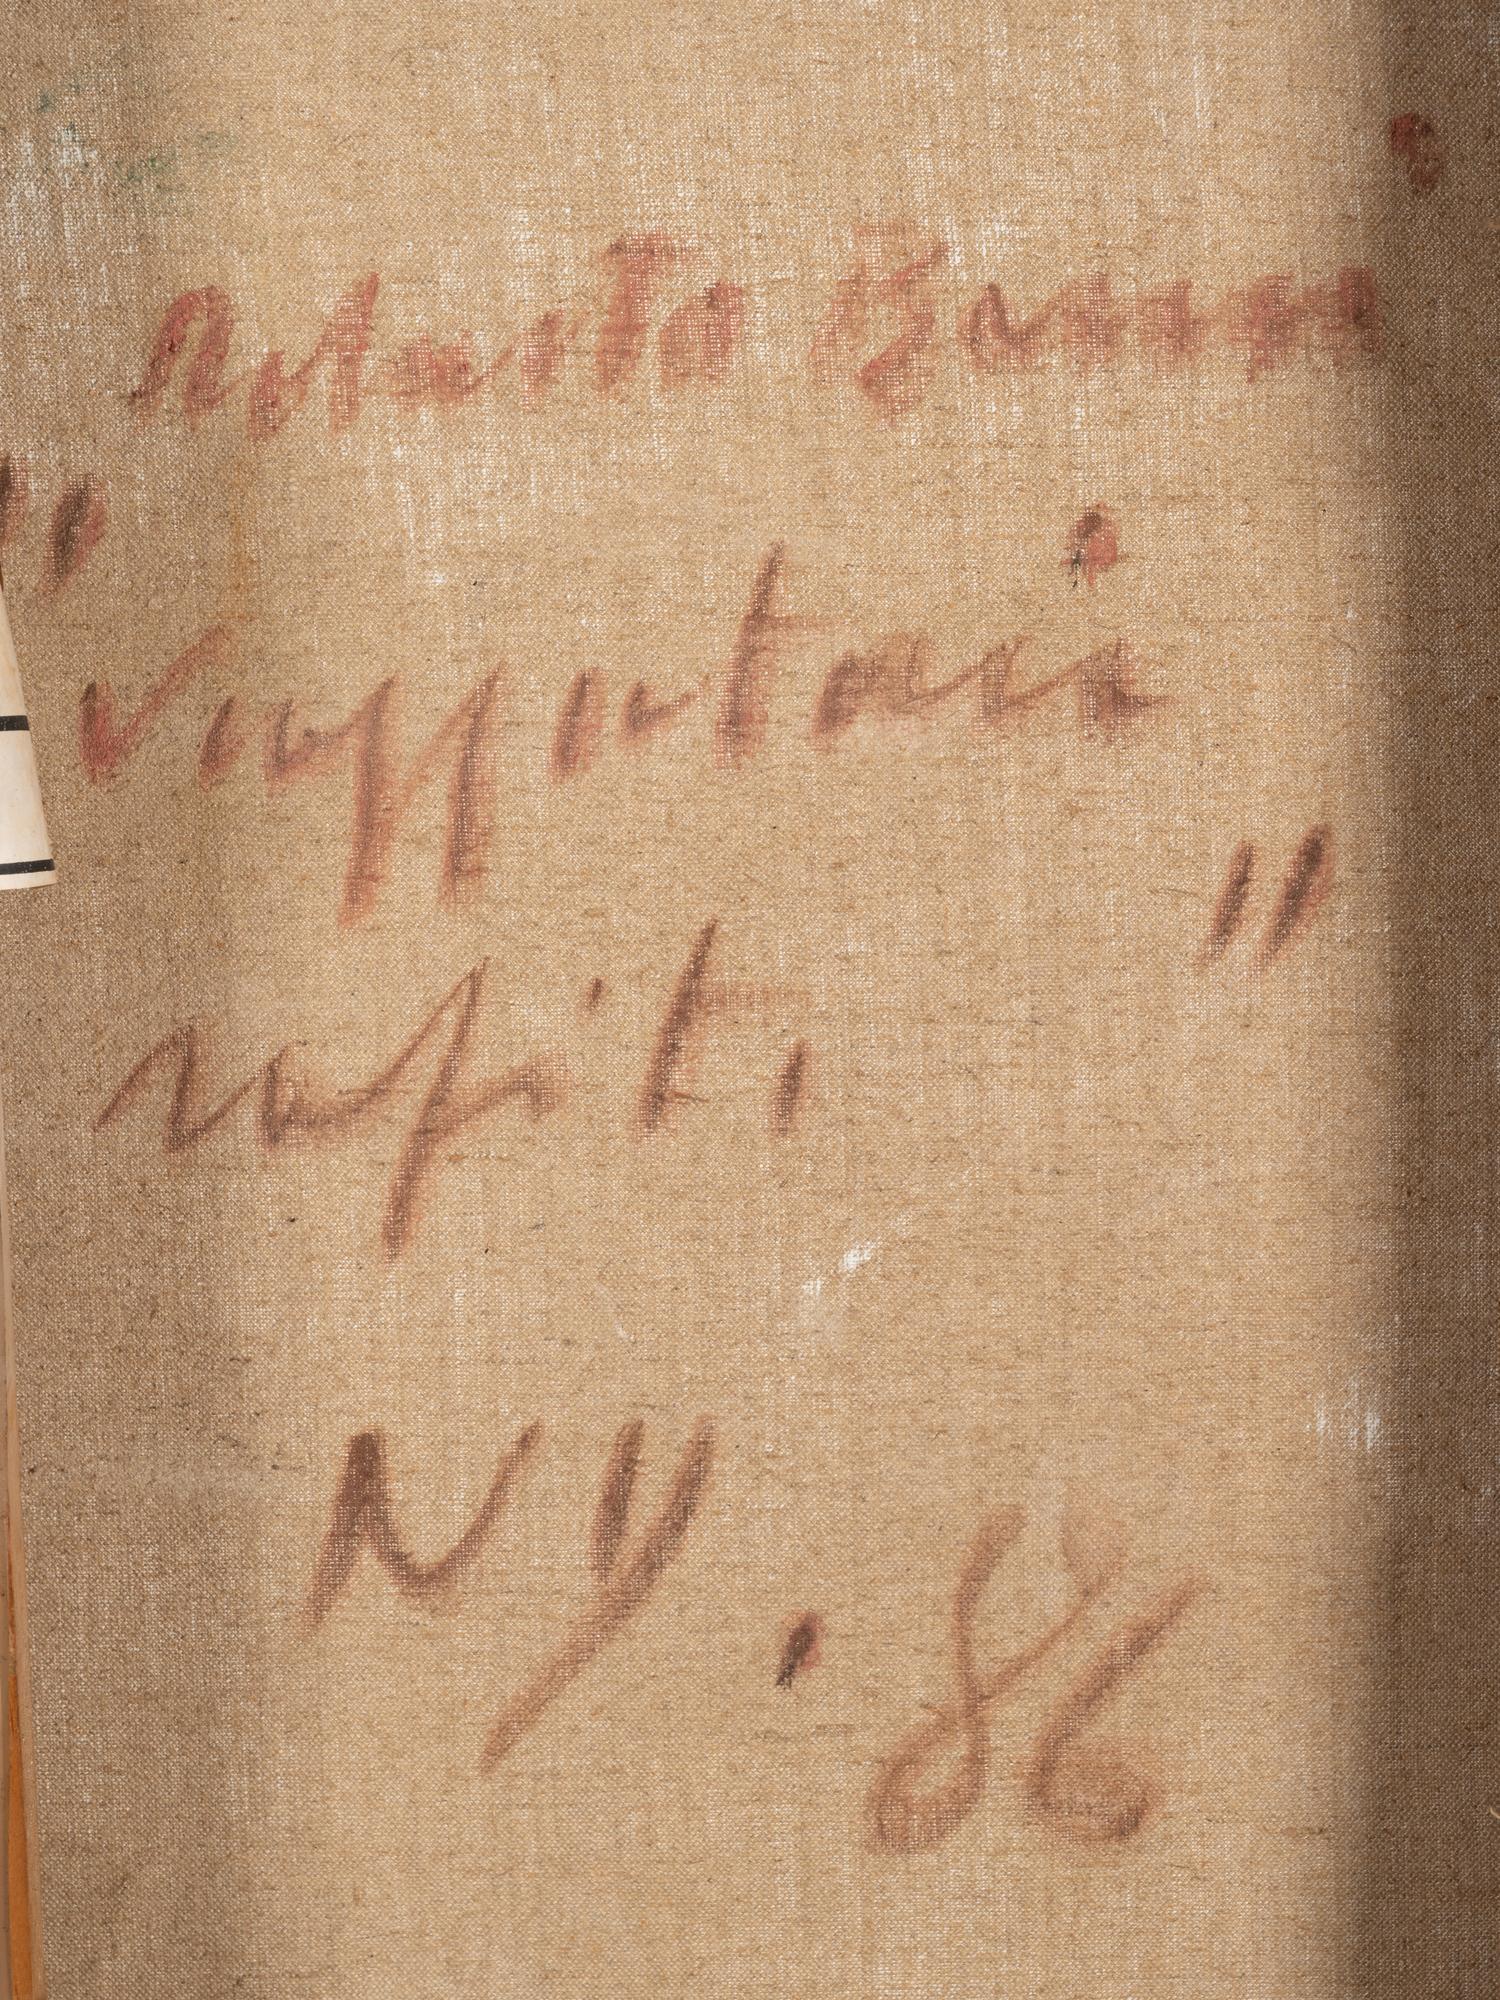 Roberto Barni
" Viaggiatori
rapiti "
NY . 86